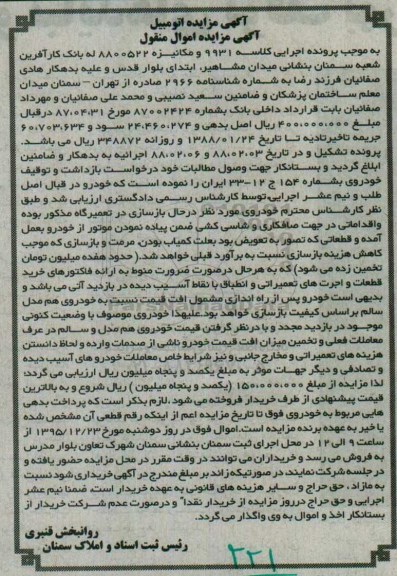 آگهی مزایده اتومبیل
آگهی مزایده اموال منقول
به موجب پرونده اجرایی کلاسه ۹۹۳۱ و مکانیزه ۸۸۰۰۵۲۲ له بانک کارآفرین
شعبه سمنان بنشانی میدان مشاهیر، ابتدای بلوار قدس و علیه بدهکار هادی
صفائیان فرزند رضا به شماره شناسنامه ۲۹۶۶ صادره از تهران – سمنان میدان
معلم ساختمان پزشکان و ضامنین سعید نصیبی و محمد علی صفائیان و مهرداد
صفائیان بابت قرارداد داخلی بانک بشماره ۸۷۰۰۲۴۲۴ مورخ ۸۷/۰۴/۳۰ درقبال
مبلغ ۴۰۰،۰۰۰،۰۰۰ ریال اصل بدهی و ۲۴،۴۶۰،۲۷۴ سود و ۶۰،۷۰۳،۶۳۴
جریمه تاخیرتادیه تا تاریخ ۱۳۸۸/۰۱/۲۴ و روزانه ۳۴۸۸۷۲ ریال می باشد.
پرونده تشکیل و در تاریخ ۸۸،۰۲،۰۳ و ۸۸،۰۲،۰۶ اجرائیه به بدهکار و ضامنین
ابلاغ گردید و بستانکار جهت وصول مطالبات خود درخواست بازداشت و توقیف
خودروی بشماره ۱۵۴ ج ۱۲–۳۳ ایران را نموده است که خودرو در قبال اصل
طلب و نیم عشر اجرایی توسط کارشناس رسمی دادگستری ارزیابی شد و طبق
نظر کارشناس محترم خودروی مورد نظر درحال بازسازی در تعمیرگاه مذکور بوده
واقداماتی در جهت صافکاری و شاسی کشی ضمن پیاده نمودن موتور از خودرو بعمل
آمده و قطعاتی که تصور به تعویض بود بعلت کمیاب بودن مرمت و بازسازی که موجب
کاهش هزینه بازسازی نسبت به برآورد قبلی خواهد شد.( حدود هفده میلیون تومان
تخمین زده می شود) که به هرحال درصورت ضرورت منوط به ارائه فاکتورهای خرید
قطعات و اجرت های تعمیراتی و انطباق با نقاط آسیب دیده در بازدید آتی می باشد و
بدیهی است خودرو پس از راه اندازی مشمول افت قیمت نسبت به خودروی هم مدل
سالم براساس کیفیت بازسازی خواهد بود.علیهذا خودروی موصوف با وضعیت کنونی
موجود در بازدید مجدد و با درنظر گرفتن قیمت خودروی هم مدل و سالم در عرف
معاملات فعلی و تخمین میزان افت قیمت خودرو ناشی از صدمات وارده و لحاظ دانستن
هزینه های تعمیراتی و مخارج جانبی و نیز شرایط خاص معاملات خودرو های آسیب دیده
و تصادفی و دیگر جهات موثر به مبلغ یکصد و پنجاه میلیون ریال ارزیابی می گردد.
لذا مزایده از مبلغ ۱۵۰،۰۰۰،۰۰۰ (یکصد و پنجاه میلیون ) ریال شروع و به بالاترین
قیمت پیشنهادی از طرف خریدار فروخته می شود .لازم بذکر است که پرداخت بدهی
هایی مربوط به خودروی فوق تا تاریخ مزایده اعم از اینکه رقم قطعی آن مشخص شده
یا خیر به عهده برنده مزایده است.اموال فوق در روز دوشنبه مورخ ۱۳۹۵/۱۲/۲۳ از
ساعت ۹ الی ۱۲ در محل اجرای ثبت سمنان بنشانی سمنان شهرک تعاون بلوار مدرس
به فروش می رسد و خریداران می توانند در وقت مقرر در محل مزایده حضور یافته و
در جلسه شرکت نمایند، در صورتیکه زاند بر مبلغ مندرج در آگهی خریداری شود نسبت
به مازاد ، حق حراج و سایر هزینه های قانونی به عهده خریدار است، ضمنا نیم عشر
اجرایی و حق حراج درروز مزایده از خریدار نقدا" و درصورت عدم شرکت خریدار از
بستانکار اخذ و اموال به وی واگذار می گردد.
روانبخش قنبری
رئیس ثبت اسناد و املاک سمنان
۲۲۱